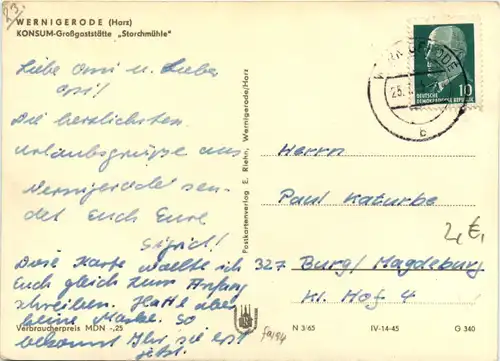 23.
WERNIGERODE (Harz)
KONSUM-Großgaststätte „Storchmühle"
Liebe Omi u. Lieber
Opi!
Die herzlichsten
Urlaubsgrüße aus
Wernigerode sen-
det Euch Eure
Sigrid!
Diese Karte wollte ich
Euch gleich zum Anfang
schreiben. Hatte aber
keine Marke. So
bekommt Ihr sie erst
jetzt.
Verbraucherpreis MDN -,25
Postkartenverlag E. Riehn, Wernigerode/Harz
WERNIGERODE
25.
b
DEUTSCHE
DEMOKRATISCHE REPUBLIK
10
Herrn
Paul Katurbe
2,€,
327 Burg/Magdeburg
Kl. Hof 4
N 3/65
IV-14-45
G 340